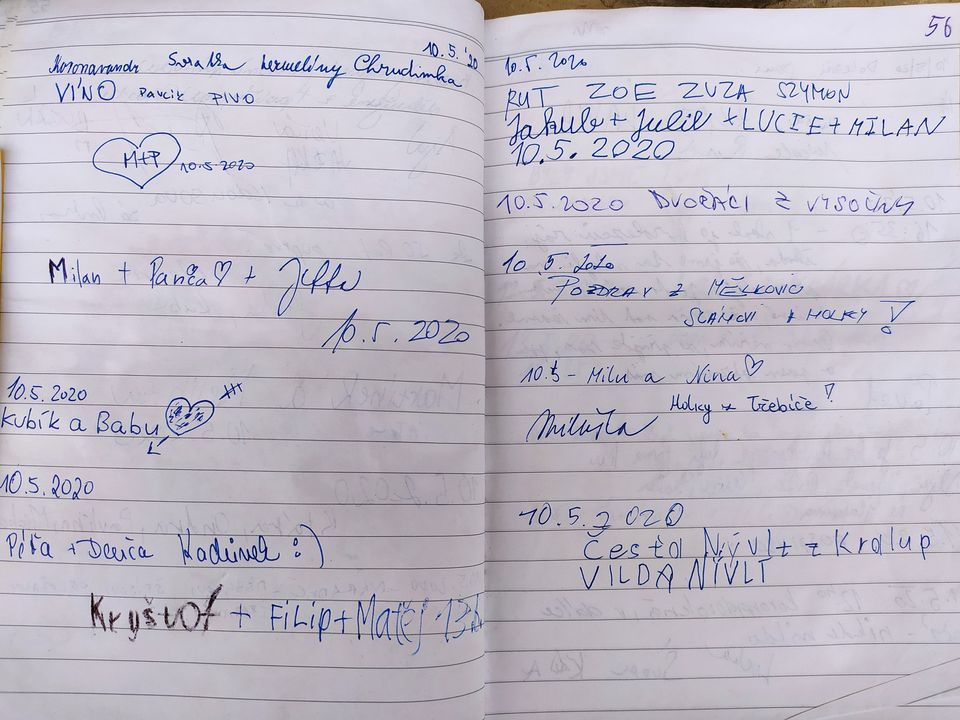 10.5.'20
Koronavandr Svratka hermelíny Chrudimka
VÍNO PIVO
M+P 10.5.2020
Milan + Panča +
10.5.2020
10.5.2020
Kubík a Babu
10.5.2020
Péťa + Danča :)
Kryštof + FiLip + Matěj
56
10.5.2020
RUT ZOE ZUZA SZYMON
Jakub + Julie + LUCIE + MILAN
10.5.2020
10.5.2020 DVOŘÁCI Z VYSOČINY
10.5.2020
POZDRAV Z
HOLKY !
10.5 - Milu a Nina
Holky z Třebíče!
Miluška
10.5.2020
Nývlt z Kralup
VILDA NÍVLT